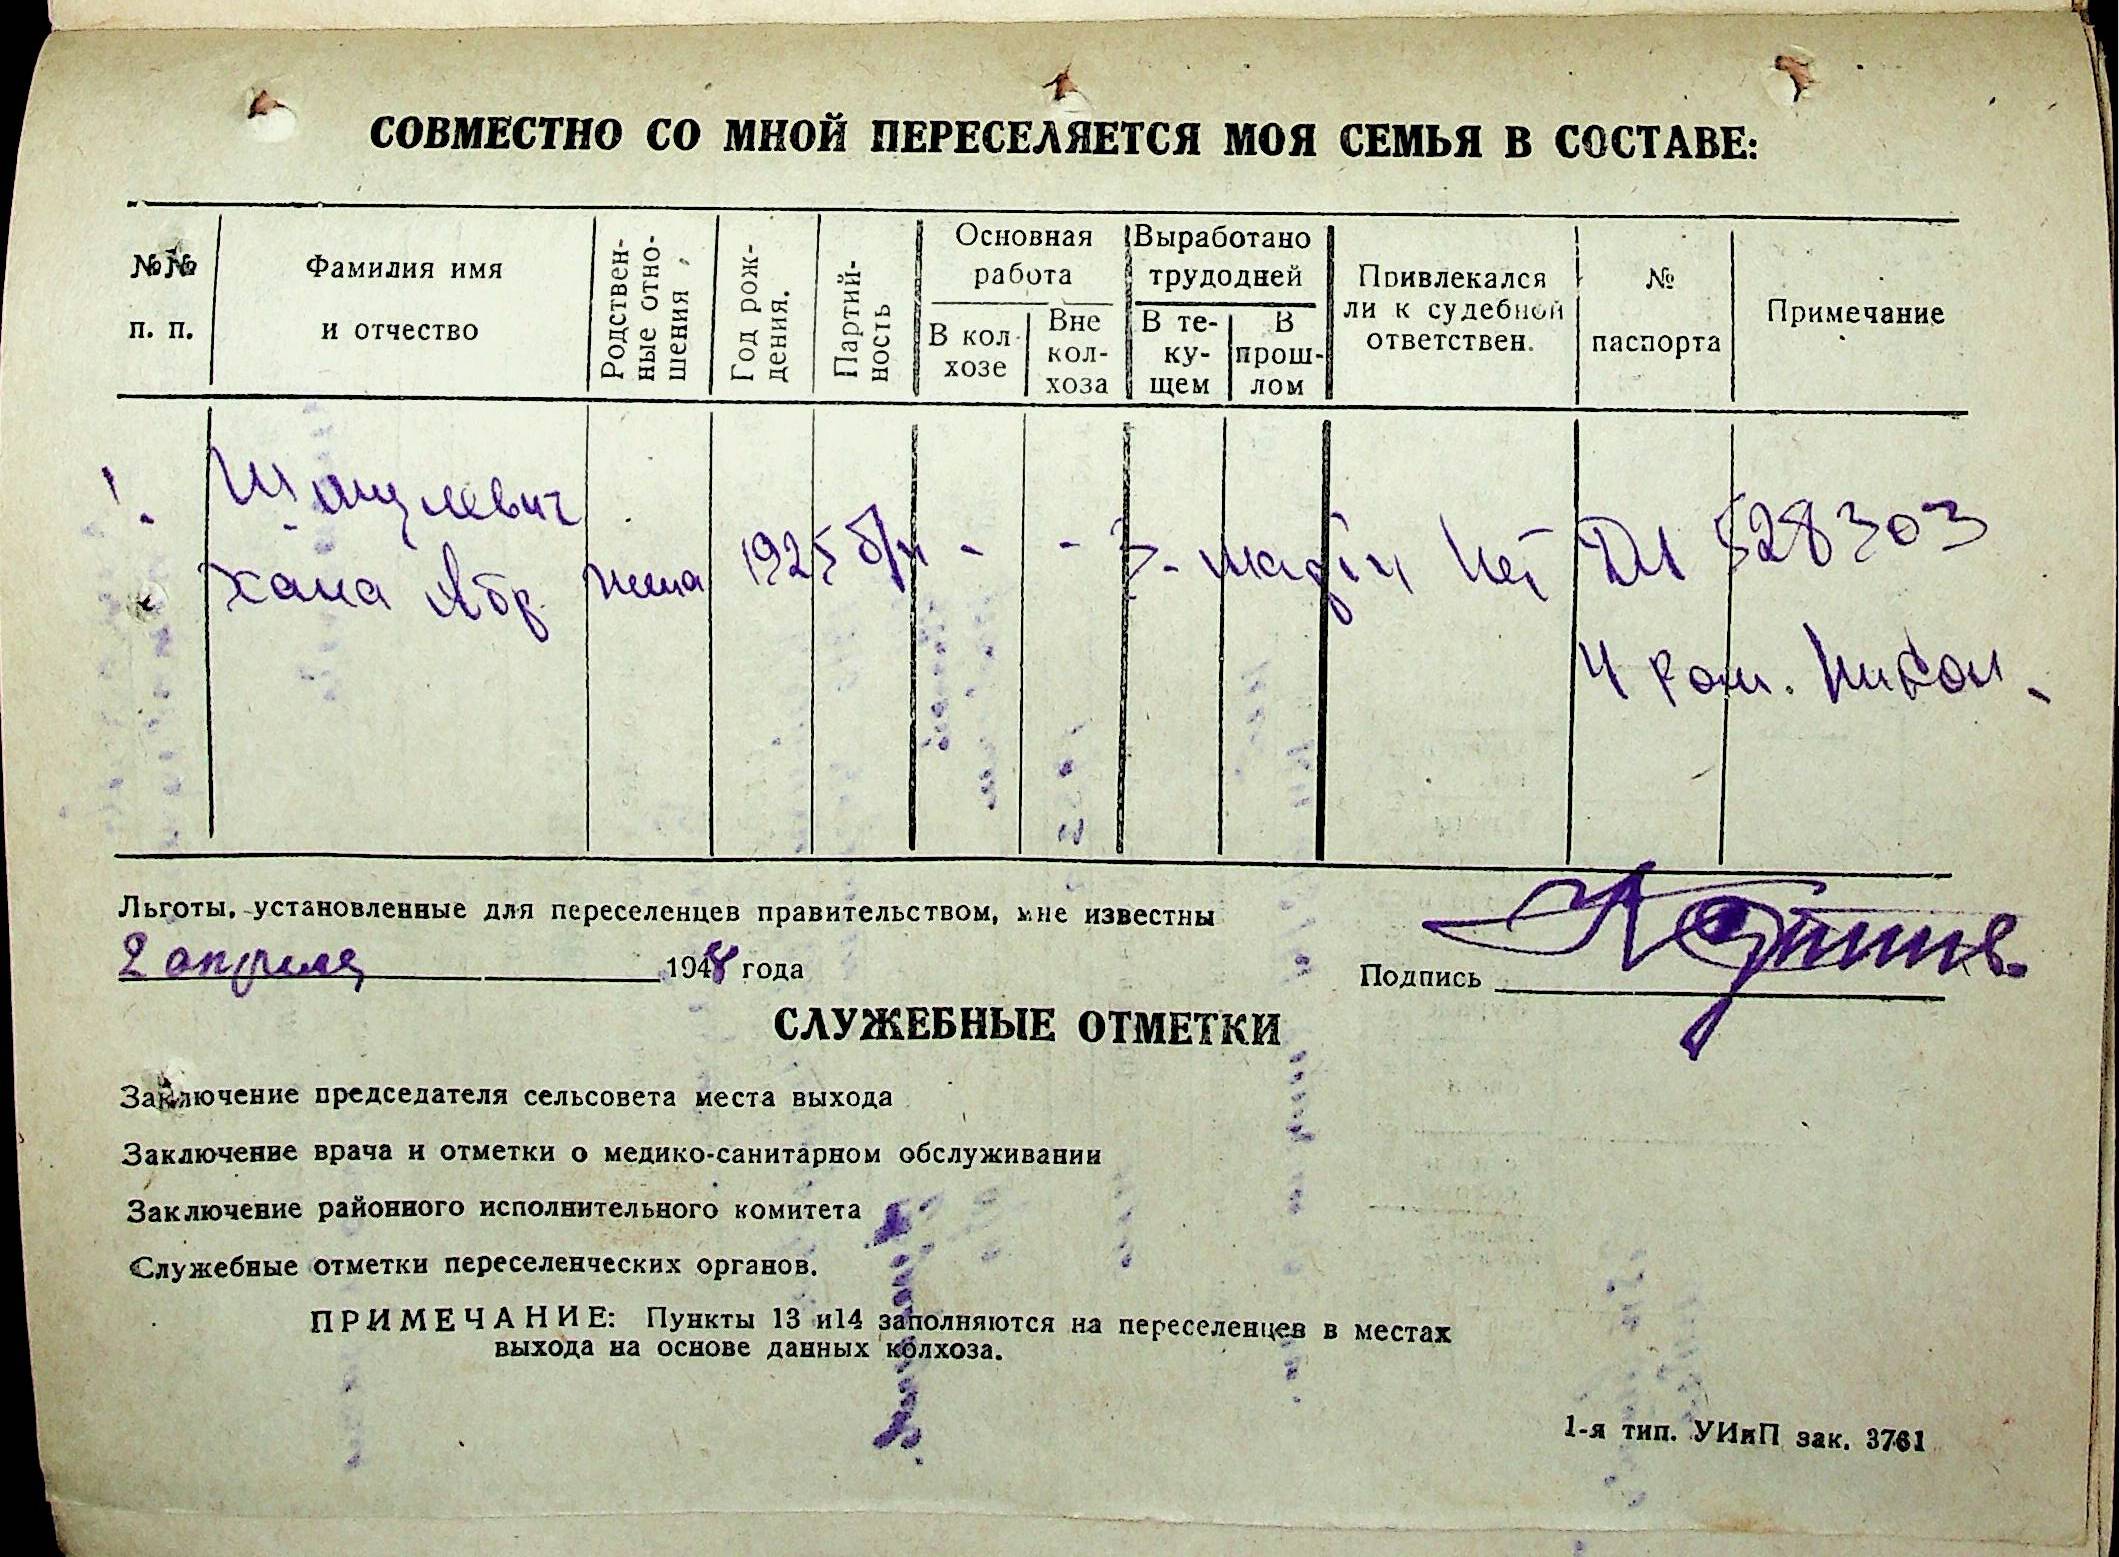 СОВМЕСТНО СО МНОЙ ПЕРЕСЕЛЯЕТСЯ МОЯ СЕМЬЯ В СОСТАВЕ:
№№ п. п.
Фамилия имя и отчество
Родствен-
ные отно-
шения
Год рож-
дения.
Партий-
ность
Основная
работа
В кол-
хозе
Вне
кол-
хоза
Выработано
трудодней
В те-
ку-
щем
В
прош-
лом
Привлекался
ли к судебной
ответствен.
№
паспорта
Примечание
1.
Хана Абр. жена 1925 б/п - - Нет 528303
4
Льготы, установленные для переселенцев правительством, мне известны
2 апреля 1948 года
Подпись
СЛУЖЕБНЫЕ ОТМЕТКИ
Заключение председателя сельсовета места выхода
Заключение врача и отметки о медико-санитарном обслуживании
Заключение районного исполнительного комитета
Служебные отметки переселенческих органов.
ПРИМЕЧАНИЕ: Пункты 13 и14 заполняются на переселенцев в местах
выхода на основе данных колхоза.
1-я тип. УИиП зак. 3761